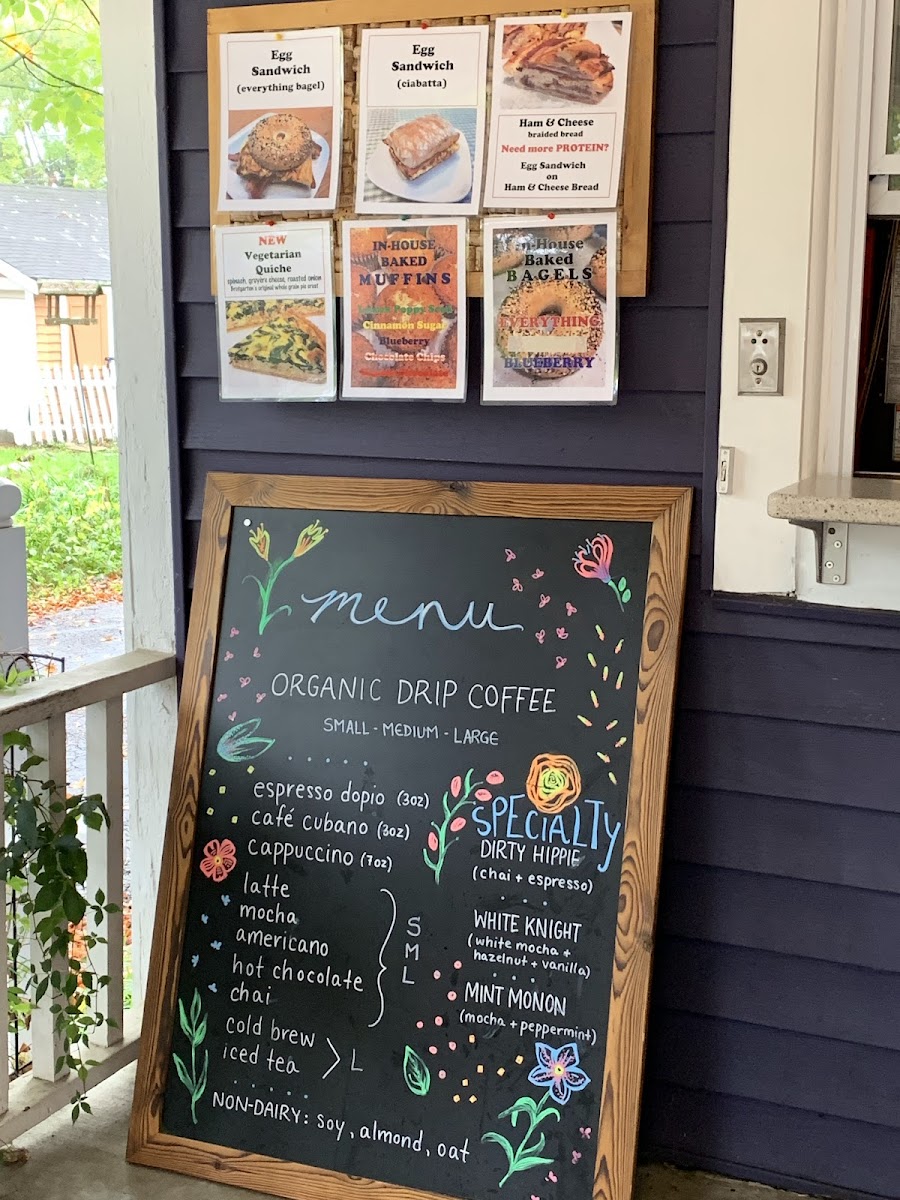 Egg
Sandwich
(everything bagel)
Egg
Sandwich
(ciabatta)
Ham & Cheese
braided bread
Need more PROTEIN?
Egg Sandwich
on
Ham & Cheese Bread
NEW
Vegetarian
Quiche
spinach, gruyere cheese, roasted onion
original whole grain pie crust
IN-HOUSE
BAKED
MUFFINS
Poppy Seed
Cinnamon Sugar
Blueberry
Chocolate Chips
In-House
Baked
BAGELS
EVERYTHING
BLUEBERRY
menu
ORGANIC DRIP COFFEE
SMALL - MEDIUM - LARGE
espresso dopio (3oz)
café cubano (3oz)
cappuccino (7oz)
latte
mocha
americano
hot chocolate
chai
S
M
L
cold brew
iced tea
L
NON-DAIRY: soy, almond, oat
SPECIALTY
DIRTY HIPPIE
(chai + espresso)
WHITE KNIGHT
(white mocha +
hazelnut + vanilla)
MINT MONON
(mocha + peppermint)